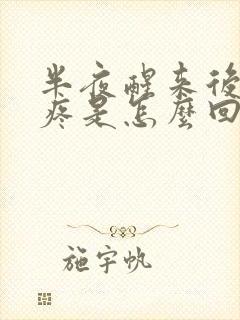 半夜醒来後
疼是怎麼回
施宇帆